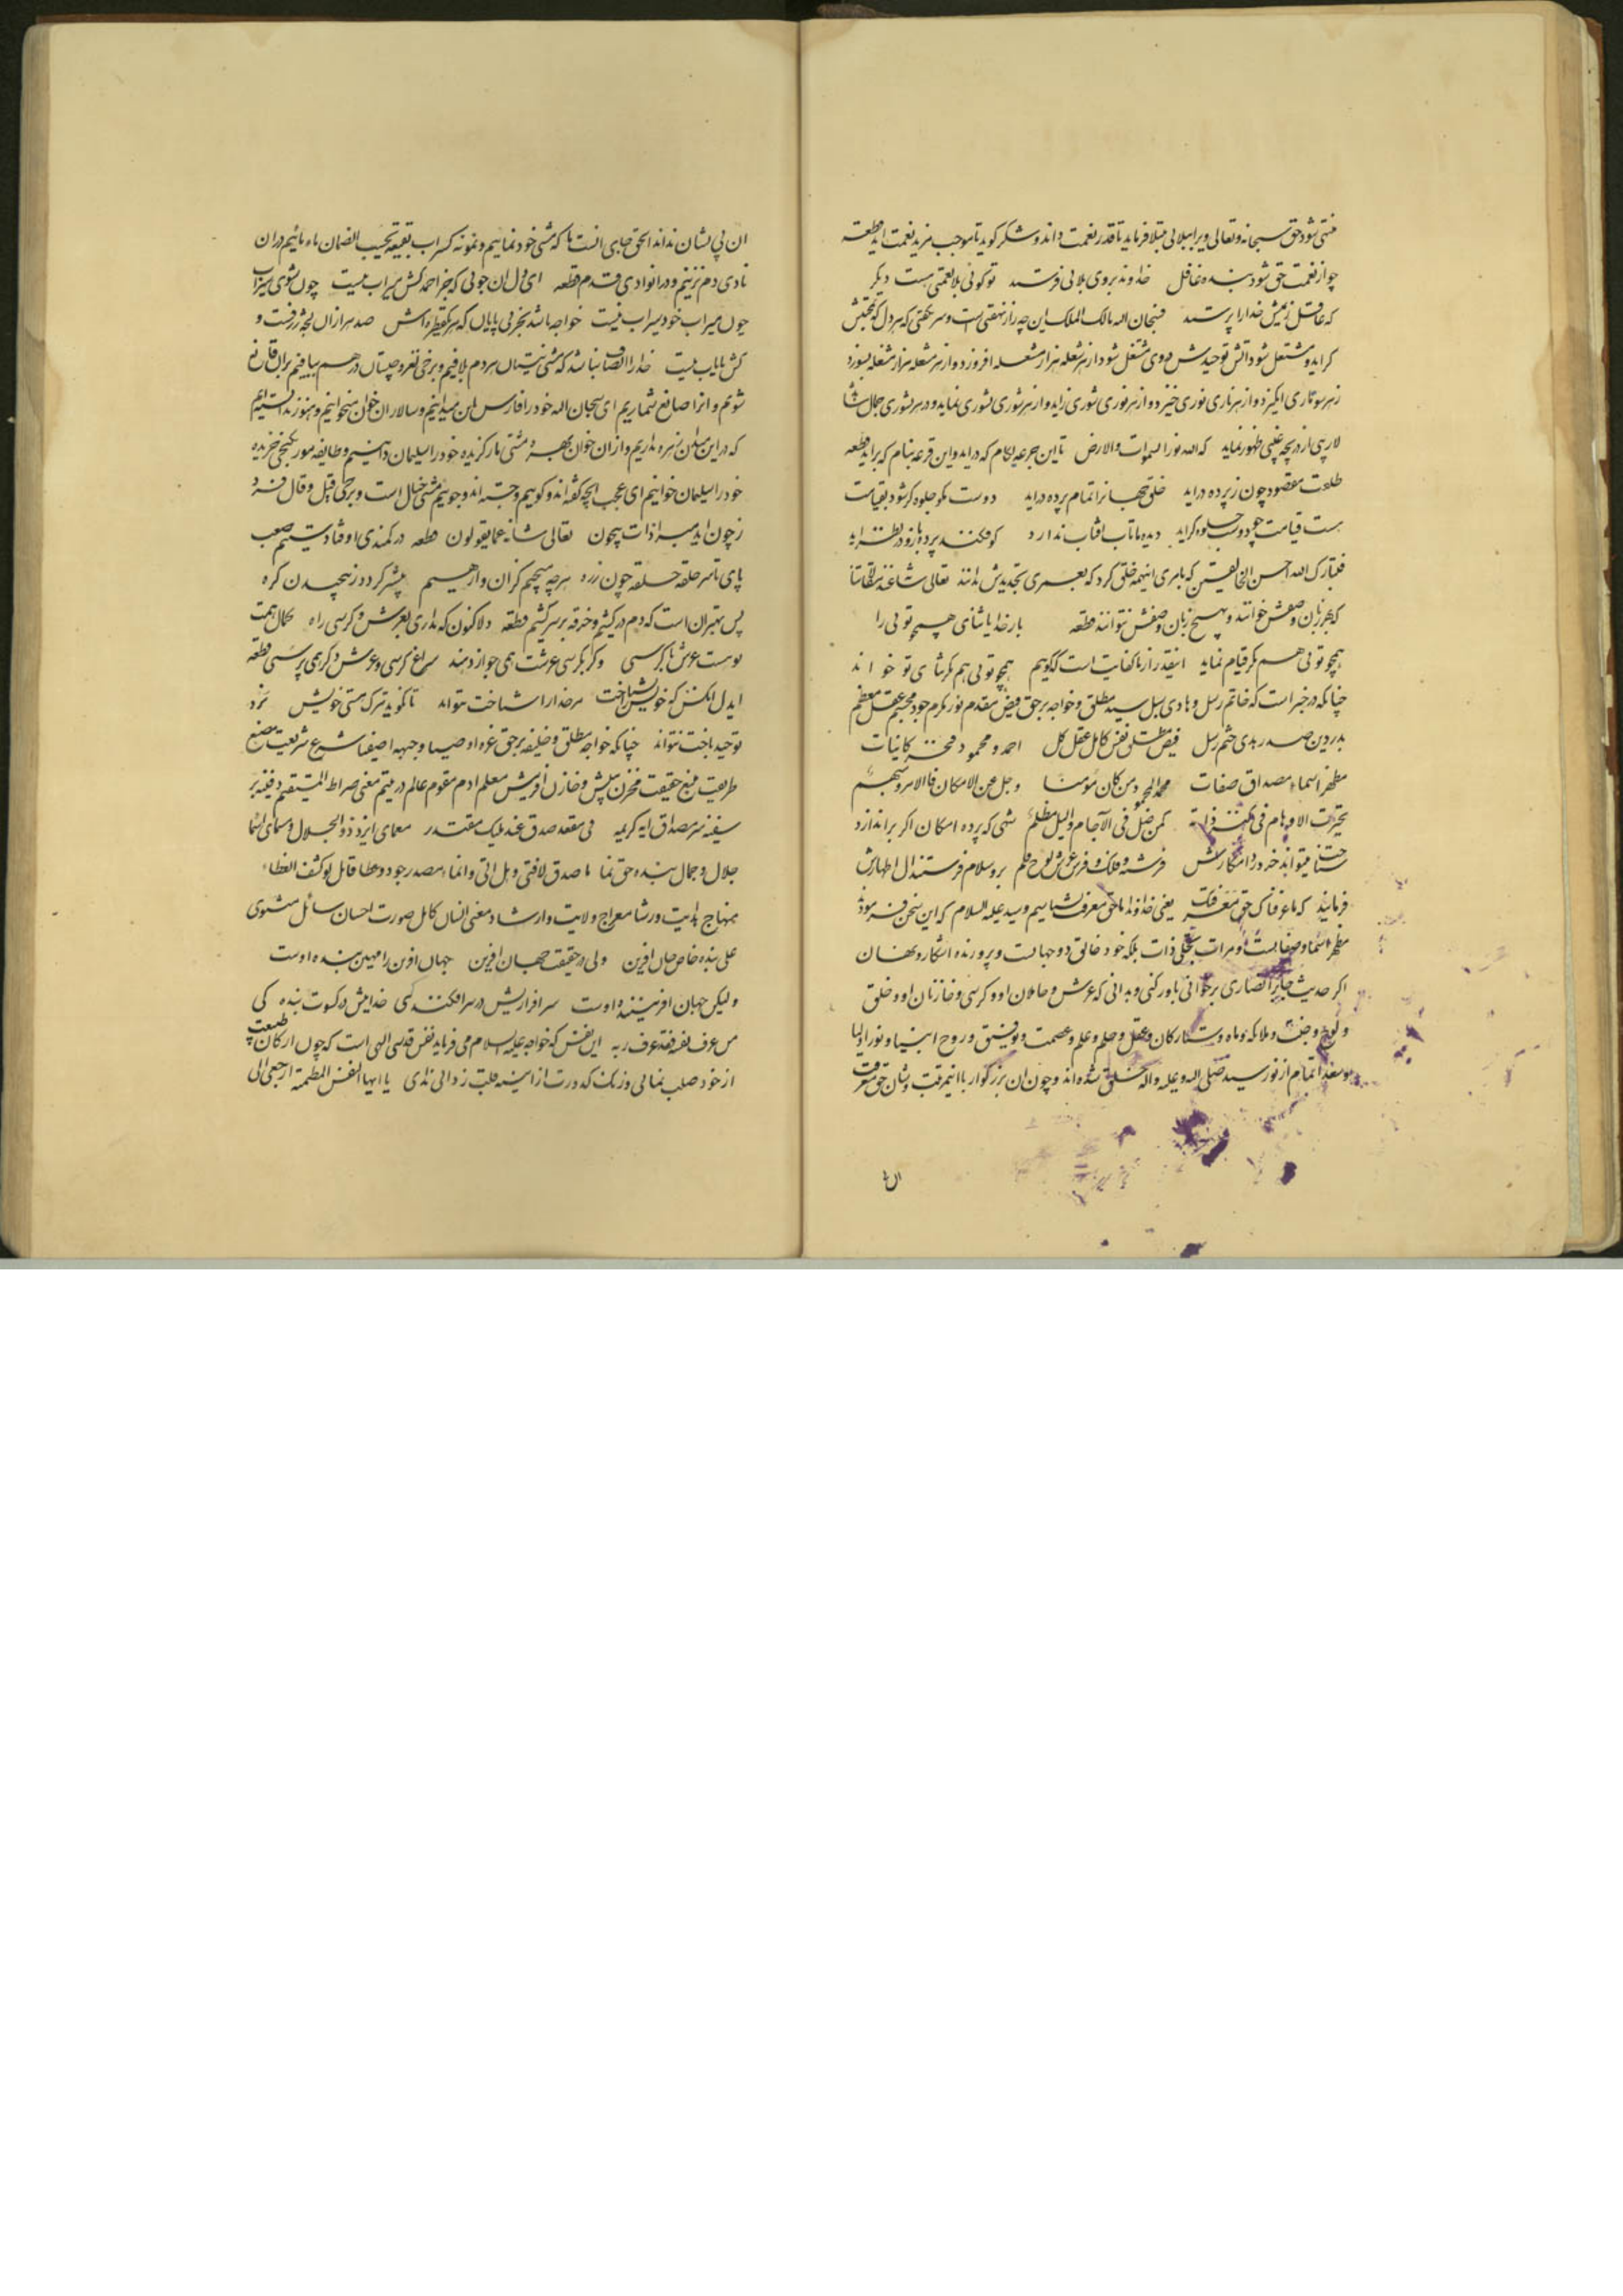 منتهی شود حق سبحانه و تعالی ویرا ببلائی مبتلا فرماید تا قدر نعمت داند و شکر گوید تا موجب مزید نعمت آید قطعه
چو از نعمت حق شود بنده غافل خداوند بروی بلائی فرستد تو گوئی بلا نعمتی هست دیگر
که غافل زبیمش خدا را پرستد فسبحان الله مالک الملک این چه راز نهفتی است و سر نگفتی که بر دل که تجلیش
گراید و مشتعل شود آتش توحیدش در وی مشتعل شود از هر شعله هزار شعله افروزد و از هر شعله هزار مشعله بسوزد
زهر سو ناری انگیزد و از هر ناری نوری خیزد و از هر نوری شوری زاید و از هر شوری نشوری نماید و در هر نشوری جمال شاهد
لاریبی از دریچه غیبی ظهور نماید که الله نور السموات والارض تا این جرعه بکام که دراید و این قرعه بنام که براید قطعه
طلعت مقصود چون ز پرده دراید خلق جهانرا تمام پرده دراید دوست مگو جلوه گر شود بقیامت
هست قیامت چو دوست جلوه گراید دیده ما تاب آفتاب ندارد کو فکند پرده باز و در نظر آید
فتبارک الله احسن الخالقین که بامری اینهمه خلق کرد که بعمری تحدیدش ندانند تعالی شانه عن مقالاتنا
که بهر زبان وصفش خوانند و بهیچ زبان وصفش نتوانند قطعه بار خدایا ثنای همچو توئی را
همچو توئی هم مگر قیام نماید اینقدر از ما کفایت است که گوییم همچو توئی هم مگر ثنای تو خواند
چنانکه در خبر است که خاتم رسل و هادی سبل سید مطلق و خواجه برحق فیض مقدم نور مکرم جود مجسم عقل معظم
بدر دین صدر هدی ختم رسل فیض مطلق نفس کامل عقل کل احمد و محمود فخر کاینات
مظهر اسماء مصداق صفات محمد المحمود من کان مؤمنا وجل عن الامکان فالامر مبهم
تحیرت الاوهام فی کنه ذاته کمن ضل فی الآجام واللیل مظلم شهی که پرده امکان اگر براندازد
فرشته و فلک و فرش و عرش و لوح و قلم برو سلام فرستند از اظهارش
فرمایند که ما عرفناک حق معرفتک یعنی خداوندا ما حق معرفت نشناسیم و سید علیه السلام که این سخن فرمودند
مظهر اسما و صفات است و مرات تجلی ذات بلکه خود خالق دو جهانست و پرورنده آشکار و نهان
اگر حدیث جابر انصاری برخوانی باور کنی و بدانی که عرش و حاملان او و کرسی و خازنان او و خلق
و لوح و جنت و ملائکه و ماه و ستارگان و عقل و حلم و علم و عصمت و توفیق و روح انبیا و نور اولیا
و سعدا تمام از نور سید صلی الله و علیه و اله خلق شده اند و چون آن بزرگوار با این مرتبت و شان حق معرفت
ان بی نشان نداند الحق جای انست ما که مشتی خود نماییم و نمونه کسراب بقیعة یحسب الظمان ماء باییم در ان
نادی دم نزنیم و در انوادی قدم قطعه ای دل ان جوئی که جز احمد کسش میراب نیست چون شوی میراب
چون میراب خود سیراب نیست خواجه باشد بحر بی پایان که هر یک قطره اش صد هزاران لجه ژرفست و
کش پایاب نیست خدا را انصاف نباشد که مشتی بهتان بر دم بلافیم و برخی لغز و چیستان در هم ببافیم بران قانع
شویم و انرا صانع شماریم ای سبحان الله خود را فارس این میدانیم و سالار ان خوان میخوانیم و هنوز ندانسته ایم
که در این میدان زهره نداریم و از ان خوان بهره مشتی مار گزیده خود را سلیمان دانیم و طایفه مور بکنجی خزیده
خود را سلیمان خوانیم ای عجب آنچه گفته اند و گوییم و جسته اند و جوییم مشتی خیال است و برخی قیل و قال فرد
ز چون آید مبرا ذات بیچون تعالی شانه عما یقولون قطعه در کمندی اوفتادستیم صعب
پای تا سر حلقه حلقه چون زره هرچه پیچیم کز ان وارهیم بیشتر گردد ز پیچیدن گره
پس بهتر ان است که دم درکشیم و خرقه بر سر کشیم قطعه دلا کنون که نداری بعرش و کرسی راه کمال همت
توست عرش یا کرسی وگر بکرسی عرشت همی جواز دهند سراغ کرسی و عرش دگر همی پرسی قطعه
ایدل انکس که خویش نشناخت مر خدا را شناخت نتواند تا نگوید ترک هستی خویش نزد
توحید باخت نتواند چنانکه خواجه مطلق و خلیفه برحق غره اوصیا و جبهه اصفیا شرع شریعت مصنع
طریقت منبع حقیقت مخزن بینش و خازن افرینش معلم ادم مقوم عالم در یتیم معنی صراط المستقیم دفینه بر
سفینه سر مصداق ایه کریمه فی مقعد صدق عند ملیک مقتدر معمای ایزد ذوالجلال و سمای انما
جلال و جمال بنده حق نما ما صدق لافتی و هل اتی و انما مصدر جود و عطا قائل لو کشف الغطاء
منهاج هدایت و رشاد معراج ولایت و ارشاد معنی انسان کامل صورت احسان سائل مثنوی
علی بنده خاص جان افرین ولی در حقیقت جهان افرین جهان افرین را مهین بنده اوست
ولیکن جهان افریننده اوست سرافرازیش در سرافکندگی خدایش در کسوت بندگی
من عرف نفسه فقد عرف ربه این نفس که خواجه علیه السلام می فرماید نفس قدسی الهی است که چون ارکان طبیعت
از خود صلب نمائی و زنگ کدورت از اینه قلب زدائی ندای یا ایها النفس المطمئنة ارجعی الی